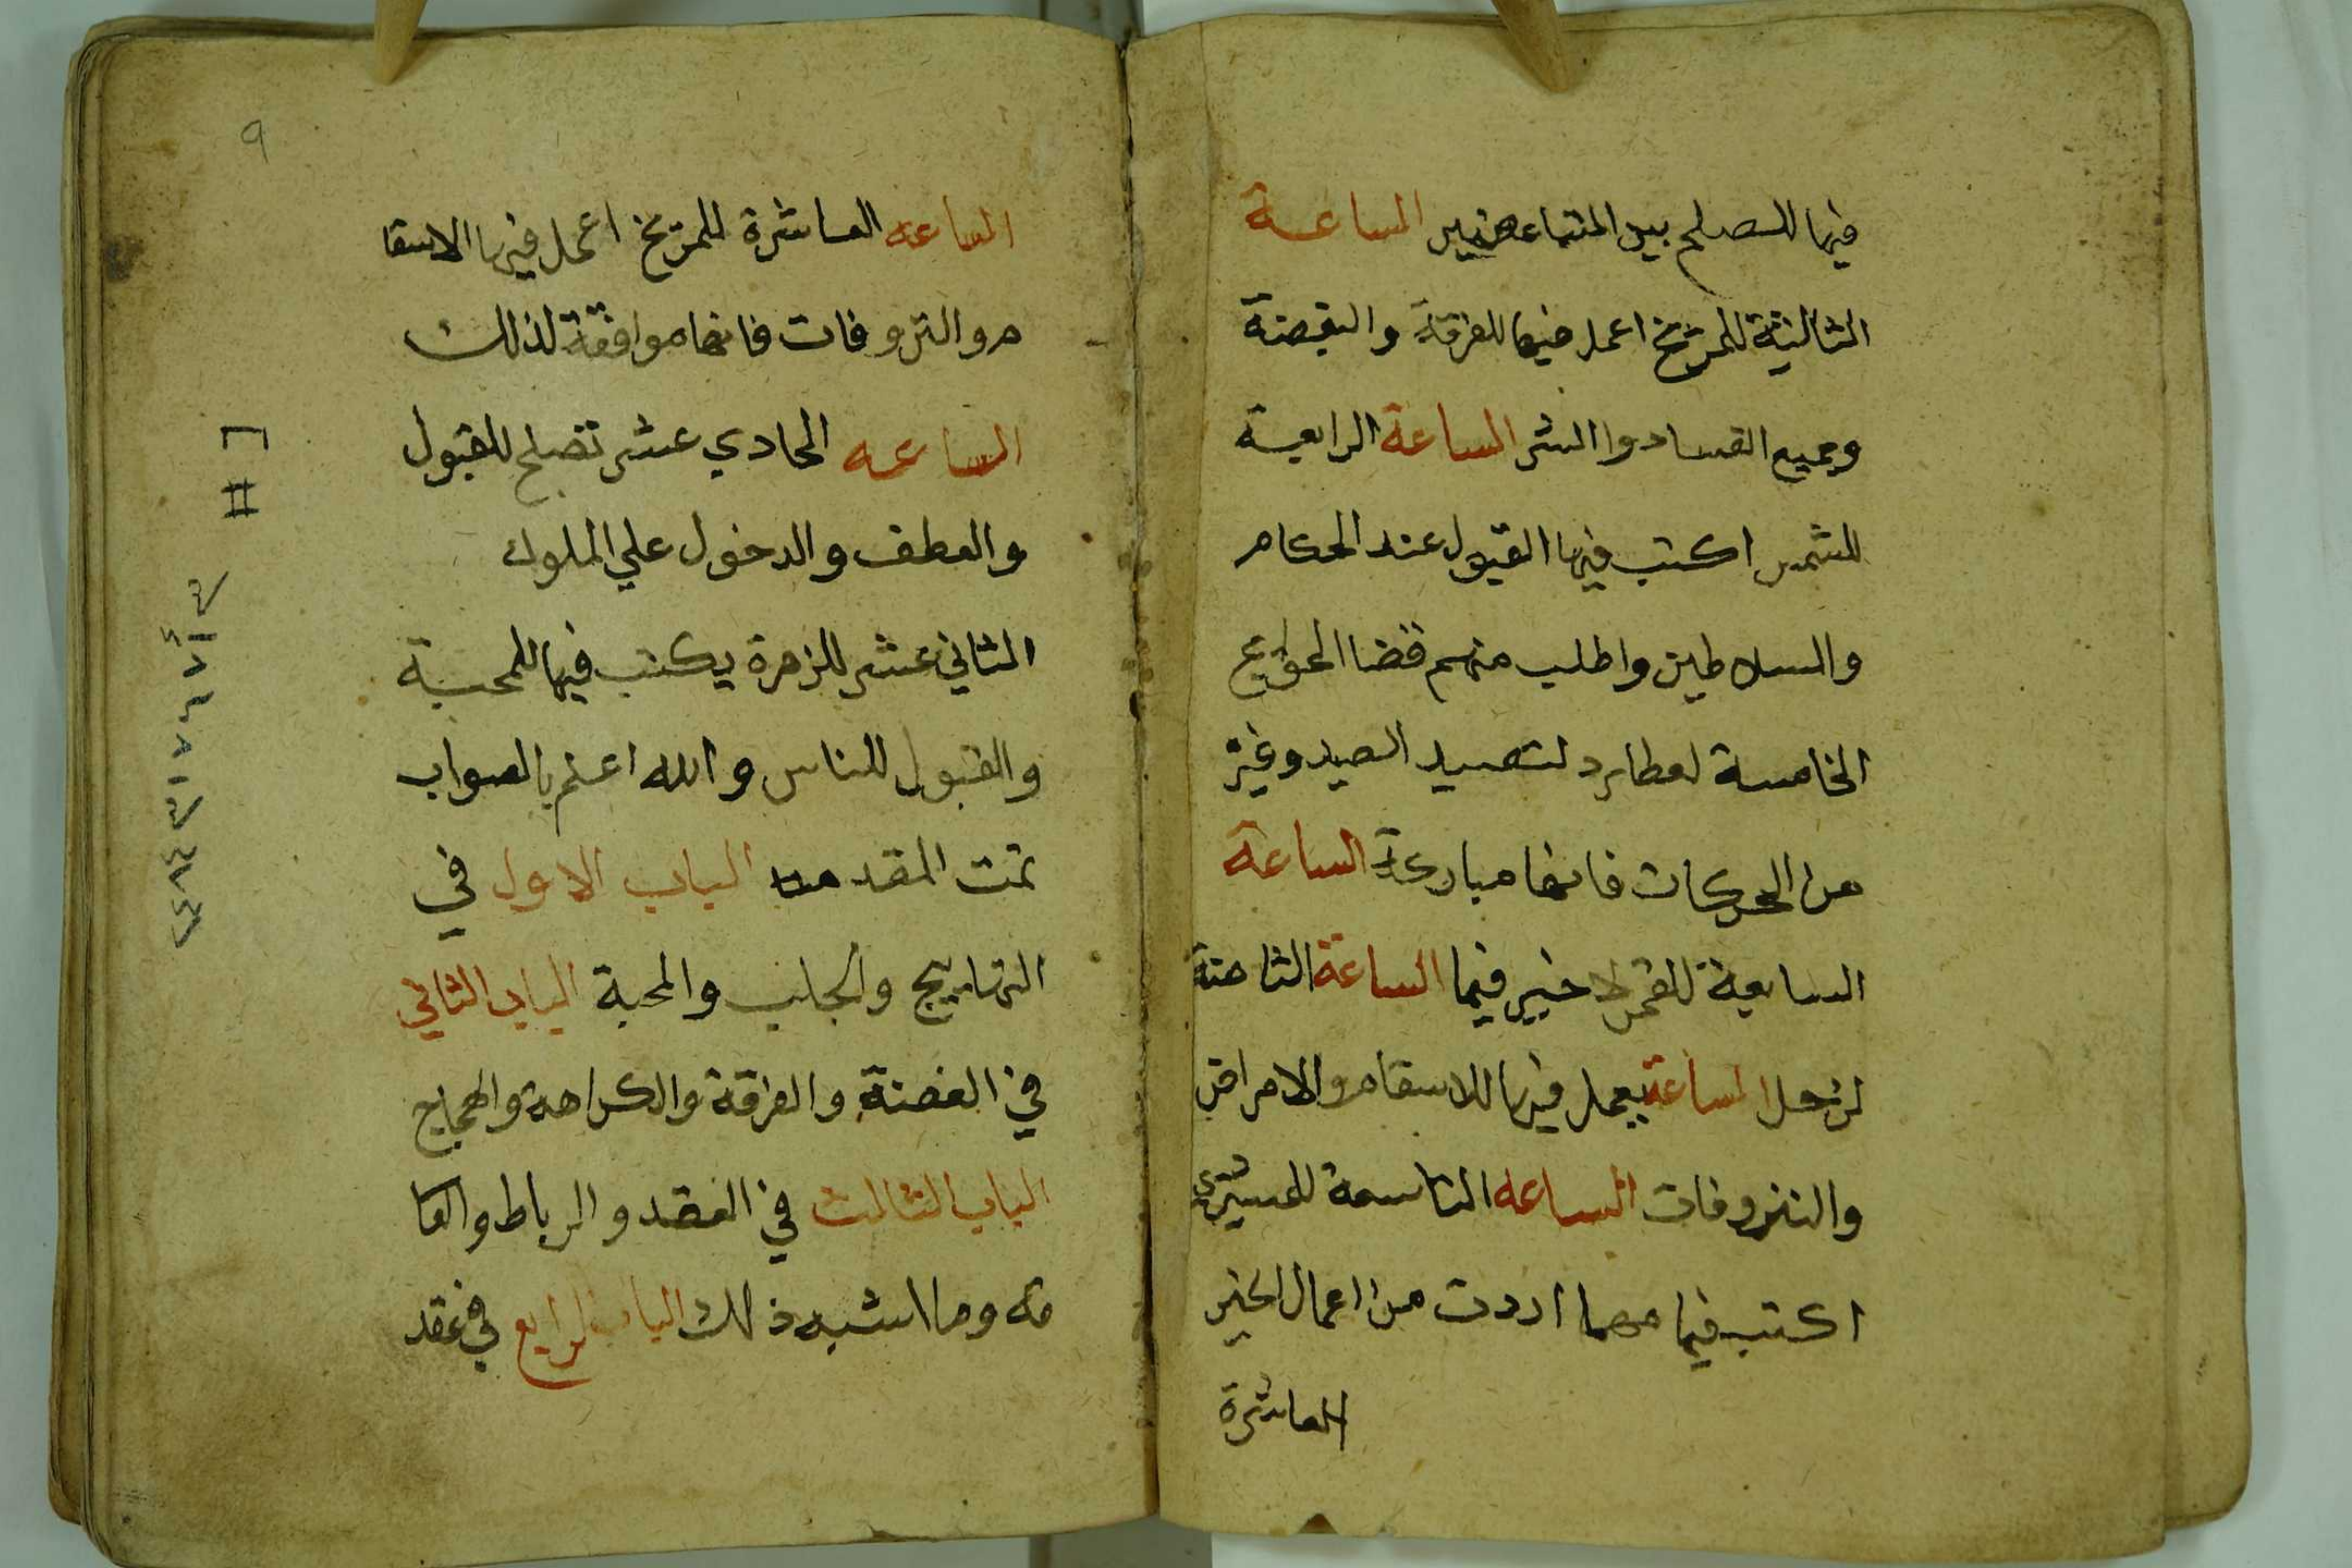 فيها للصلح بين المتباعضين الساعة
الثالثة للمريخ اعمل فيها للفرقة والبغضة
وجميع الفساد والشر الساعة الرابعة
للشمس اكتب فيها القبول عند الحكام
والسلاطين واطلب منهم قضا الحوايج
الخامسة لعطارد لتصيد الصيد وغيره
من الحركات فانها مباركة الساعة
السابعة للقمر لا خير فيها الساعة الثامنة
لزحل الساعة يعمل فيها للاسقام والامراض
والنزوفات الساعه التاسعة للمشتري
اكتب فيها مهما اردت من اعمال الخير
العاشرة
٩
الساعه العاشرة للمريخ اعمل فيها الاسقا
م والنزوفات فانها موافقة لذلك
الساعه الحادي عشر تصلح للقبول
والعطف والدخول علي الملوك
الثاني عشر للزهرة يكتب فيها للمحبة
والقبول للناس والله اعلم بالصواب
تمت المقدمه الباب الاول في
التهاييج والجلب والمحبة الباب الثاني
في الغضة والفرقة والكراهة والهجاج
الباب الثالث في العقد والرباط والعا
قه وما اشبه ذلك الباب الرابع في عقد